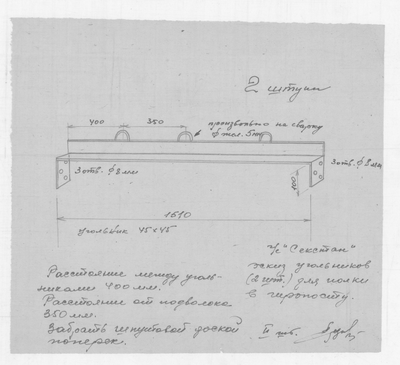 2 штуки
400
350
произвольно на сварку
3 отв. ϕ 8 мм
3 отв. ϕ 8 мм
100
1510
угольник 45×45
Расстояние между уголь-
никами 400 мм.
Расстояние от подволока
350 мм.
Забрать шпунтовой доской
поперек.
"Секстан"
эскиз угольников
(2 шт.) для полки
в гиропосту.